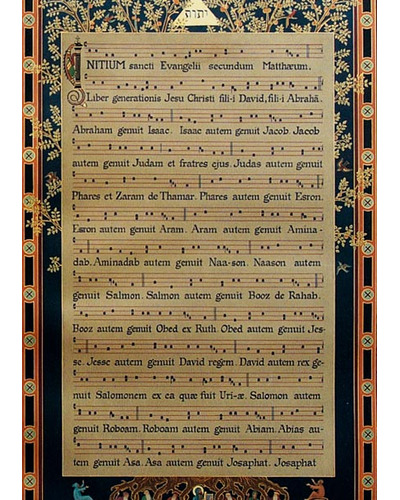 יהוה
INITIUM sancti Evangelii secundum Matthæum.
Liber generationis Jesu Christi fili-i David, fili-i Abrahā
Abraham genuit Isaac. Isaac autem genuit Jacob. Jacob
autem genuit Judam et fratres ejus. Judas autem genuit
Phares et Zaram de Thamar. Phares autem genuit Esron.
Esron autem genuit Aram. Aram autem genuit Amina-
dab. Aminadab autem genuit Naa-son. Naason autem
genuit Salmon. Salmon autem genuit Booz de Rahab.
Booz autem genuit Obed ex Ruth. Obed autem genuit Jes-
se. Jesse autem genuit David regem. David autem rex ge-
nuit Salomonem ex ea quæ fuit Uri-æ. Salomon autem
genuit Roboam. Roboam autem genuit Abiam. Abias au-
tem genuit Asa. Asa autem genuit Josaphat. Josaphat